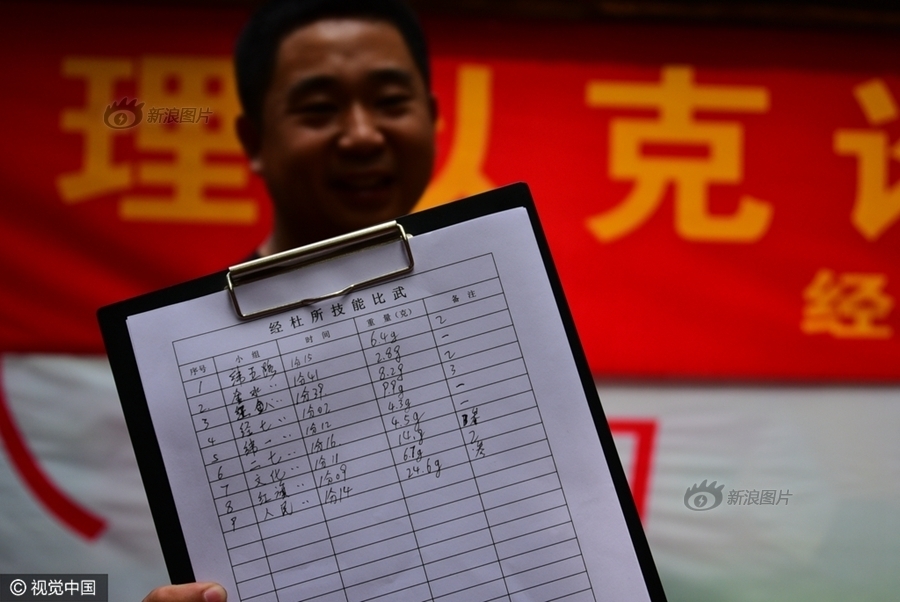 理 认 克
新浪图片
经
经杜所技能比武
序号 小组 时间 重量(克) 备注
1 纬五路 1分15 6.4g 2
2 1分41 2.8g 一
3 1分39 8.2g 2
4 经七 〃 1分02 9.9g 3
5 纬一 〃 1分12 4.3g 一
6 二七 〃 1分16 4.5g 一
7 文化 〃 1分11
8 红旗 〃 1分09 2
9 人民 〃 1分14 24.6g
新浪图片
© 视觉中国